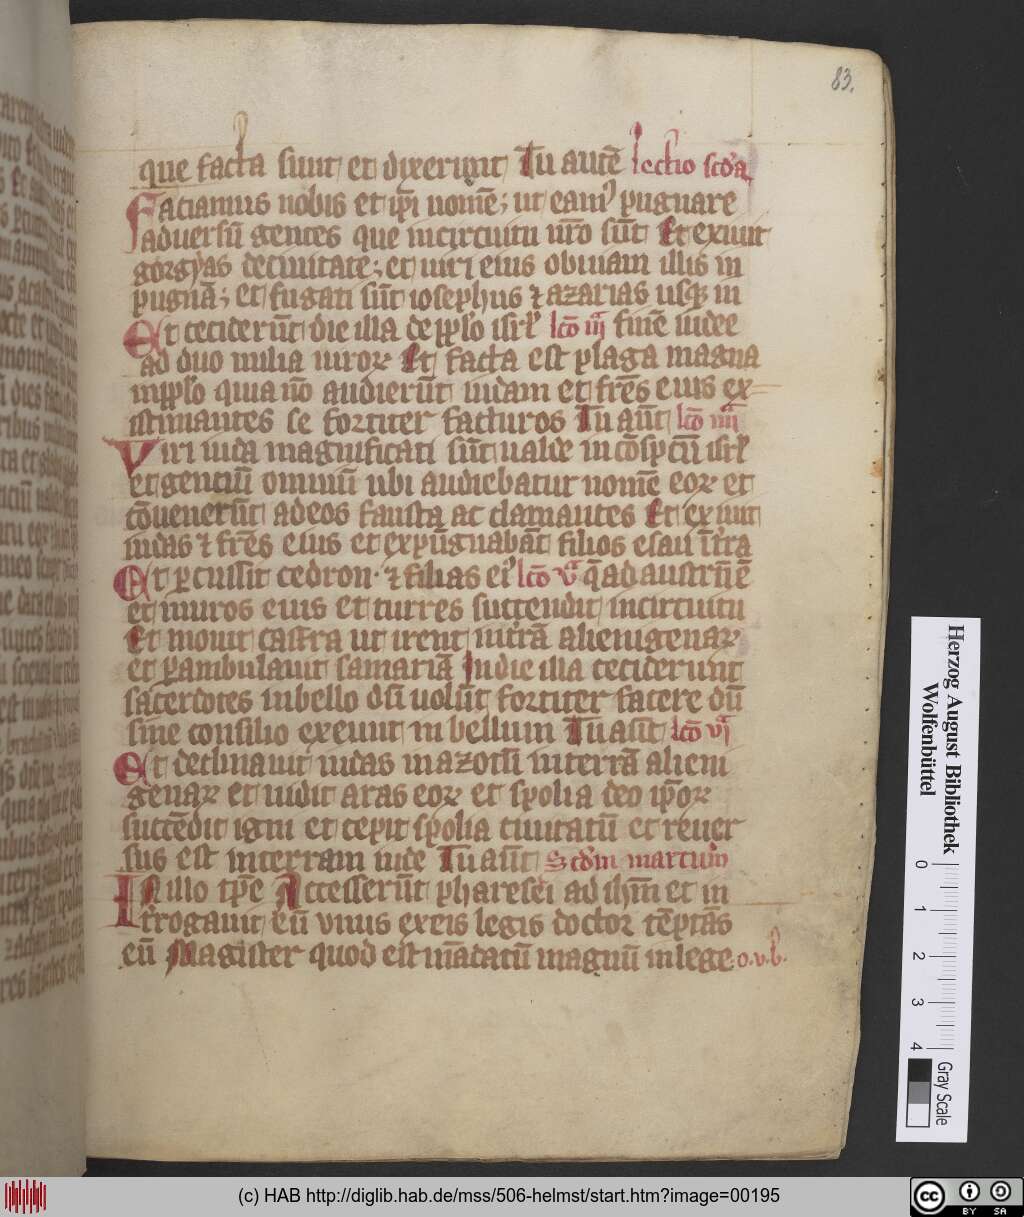 83.
que facta sunt et dixerunt Tu autē lectio scd̄a
Faciamus nobis et ip̄i nomē; ut eamꝰ pugnare
aduersū gentes que incircuitu nr̄o sūt Et exiuit
gorgyas deciuitate; et uiri eius obuiam illis in
pugnā; et fugati sūt iosephus ⁊ azarias usqꝫ in
Et ceciderūt die illa de pp̄lo isrl̄ lc̄o iij finē iudee
ad duo milia uiroꝝ Et facta est plaga magna
inpp̄lo quia nō audierūt iudam et fr̄es eius ex-
istimantes se fortiter facturos Tu aūt lc̄o iiij
Viri iuda magnificati sūt ualde in cōspc̄tū isrl̄
et gentiū omniū ubi audiebatur nomē eoꝝ et
cōuenerūt adeos fausta ac clamantes Et exiuit
iudas ⁊ fr̄es eius et expūgnabāt filios esau īt̄ra
Et ꝑcussit cedron· ⁊ filias eiꝰ lc̄o v q̄ ad austrū ē
et muros eius et turres succendit incircuitu
Et mouit castra ut iret int̄rā alienigenaꝝ
et ꝑambulauit samariā In die illa ceciderunt
sacerdotes inbello dū uolūt fortiter facere dū
sine consilio exeunt in bellum Tu aūt lc̄o vj
Et declinauit iudas in azotū interrā alieni
genaꝝ et diruit aras eoꝝ et spolia deoꝝ ip̄oꝝ
succēdit igni et cepit spolia ciuitatū et reuer
sus est interram iude Tu aūt Scd̄m marcum
In illo tp̄e Accesserūt pharesei ad ihm̄ et in
t̄rogauit eū vnus exeis legis doctor tēptās
eū Magister quod est mādatū magnū inlege· o.v.b.
Herzog August Bibliothek
Wolfenbüttel
0 1 2 3 4
Gray Scale
(c) HAB http://diglib.hab.de/mss/506-helmst/start.htm?image=00195
cc BY SA